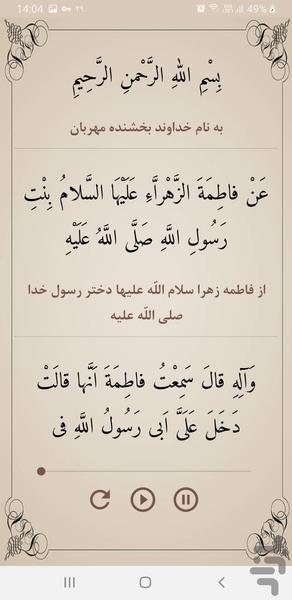 14:04 ۲۹ 49%
بِسْمِ اللهِ الرَّحْمنِ الرَّحِیمِ
به نام خداوند بخشنده مهربان
عَنْ فاطِمَةَ الزَّهْراَّءِ عَلَیْهَا السَّلامُ بِنْتِ
رَسُولِ اللَّهِ صَلَّی اللَّهُ عَلَیْهِ
از فاطمه زهرا سلام اللّه علیها دختر رسول خدا
صلی اللّه علیه
وَآلِهِ قالَ سَمِعْتُ فاطِمَةَ اَنَّها قالَتْ
دَخَلَ عَلَیَّ اَبی رَسُولُ اللَّهِ فی